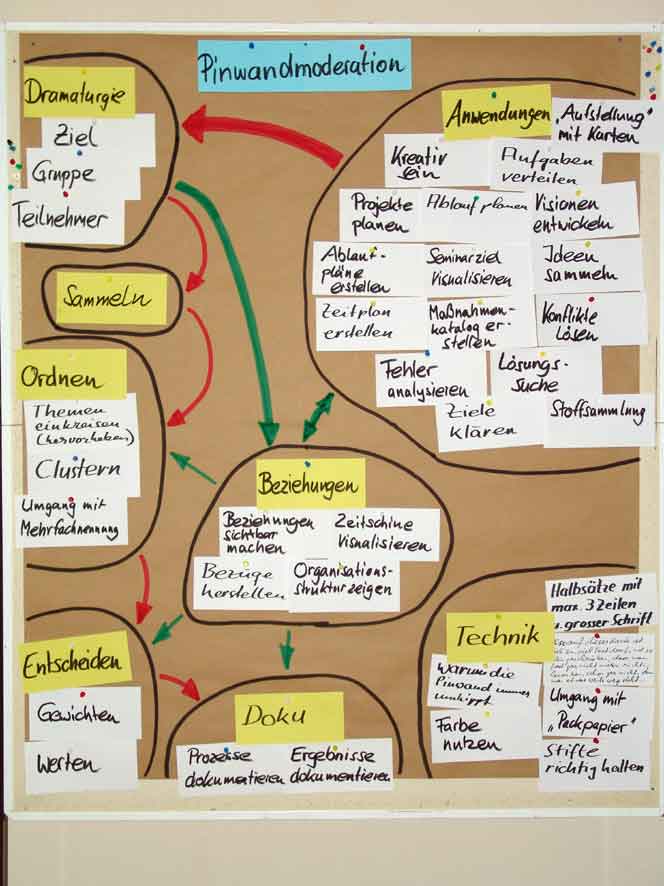 Pinwandmoderation
Dramaturgie
Ziel
Gruppe
Teilnehmer
Sammeln
Ordnen
Themen
einkreisen
(hervorheben)
Clustern
Umgang mit
Mehrfachnennung
Entscheiden
Gewichten
Werten
Anwendungen
"Aufstellung"
mit Karten
Kreativ
sein
Aufgaben
verteilen
Projekte
planen
Ablauf planen
Visionen
entwickeln
Ablauf-
pläne
erstellen
Seminarziel
Visualisieren
Ideen
sammeln
Zeitplan
erstellen
Maßnahmen-
katalog er-
stellen
Konflikte
Lösen
Fehler
analysieren
Lösungs-
Suche
Ziele
klären
Stoffsammlung
Beziehungen
Beziehungen
sichtbar
machen
Zeitschine
Visualisieren
Bezüge
herstellen
Organisations-
struktur zeigen
Doku
Prozesse
dokumentieren
Ergebnisse
dokumentieren
Technik
Halbsätze mit
max. 3 Zeilen
u. grosser Schrift
Warum die
Pinwand immer
umkippt
Umgang mit
"Packpapier"
Farbe
nutzen
Stifte
richtig halten